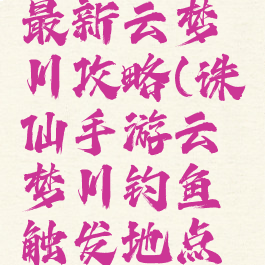 最新云梦
川攻略(诛
仙手游云
梦川钓鱼
触发地点